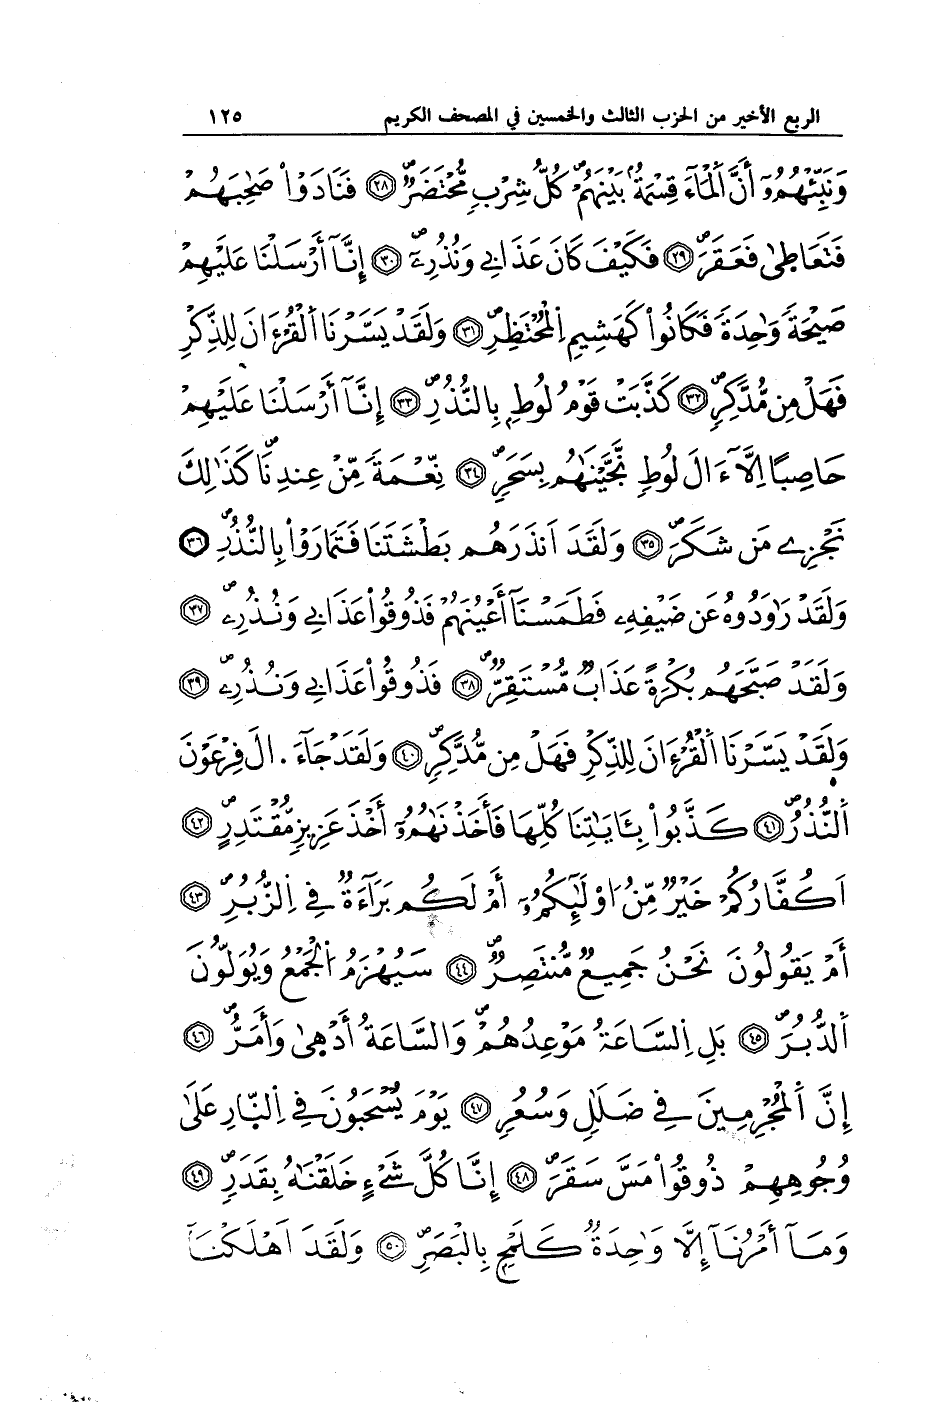 الربع الأخير من الحزب الثالث والخمسين في المصحف الكريم ١٢٥
وَنَبِّئْهُمُۥٓ أَنَّ اَ۬لْمَآءَ قِسْمَةُۢ بَيْنَهُمْ كُلُّ شِرْبٖ مُّحْتَضَرٞ ٢٨ فَنَادَوْاْ صَٰحِبَهُمْ
فَتَعَاطىٰ فَعَقَرَ ٢٩ فَكَيْفَ كَانَ عَذَابِي وَنُذُرِۦٓ ٣٠ إِنَّآ أَرْسَلْنَا عَلَيْهِمْ
صَيْحَةٗ وَٰحِدَةٗ فَكَانُواْ كَهَشِيمِ اِ۬لْمُحْتَظِرِ ٣١ وَلَقَدْ يَسَّرْنَا اَ۬لْقُرْءَانَ لِلذِّكْرِ
فَهَلْ مِن مُّدَّكِرٖ ٣٢ كَذَّبَتْ قَوْمُ لُوطِۢ بِالنُّذُرِ ٣٣ إِنَّآ أَرْسَلْنَا عَلَيْهِمْ
حَاصِبًا اِلَّآ ءَالَ لُوطٖ نَّجَّيْنَٰهُم بِسَحَرٖ ٣٤ نِّعْمَةٗ مِّنْ عِندِنَا كَذَٰلِكَ
نَجْزِي مَن شَكَرَ ٣٥ وَلَقَدَ اَنذَرَهُم بَطْشَتَنَا فَتَمَارَوْاْ بِالنُّذُرِ ٣٦
وَلَقَدْ رَٰوَدُوهُ عَن ضَيْفِهِۦ فَطَمَسْنَآ أَعْيُنَهُمْ فَذُوقُواْ عَذَابِي وَنُذُرِۦ ٣٧
وَلَقَدْ صَبَّحَهُم بُكْرَةً عَذَابٞ مُّسْتَقِرّٞ ٣٨ فَذُوقُواْ عَذَابِي وَنُذُرِۦ ٣٩
وَلَقَدْ يَسَّرْنَا اَ۬لْقُرْءَانَ لِلذِّكْرِ فَهَلْ مِن مُّدَّكِرٖ ٤٠ وَلَقَدْ جَآءَ . الَ فِرْعَوْنَ
اَ۬لنُّذُرُ ٤١ كَذَّبُواْ بِـَٔايَٰتِنَا كُلِّهَا فَأَخَذْنَٰهُمُۥٓ أَخْذَ عَزِيزٖ مُّقْتَدِرٍ ٤٢
اَكُفَّارُكُمْ خَيْرٞ مِّنُ ا۟وْلَٰٓئِكُمُۥٓ أَمْ لَكُم بَرَآءَةٞ فِي اِ۬لزُّبُرِ ٤٣
أَمْ يَقُولُونَ نَحْنُ جَمِيعٞ مُّنتَصِرٞ ٤٤ سَيُهْزَمُ اُ۬لْجَمْعُ وَيُوَلُّونَ
اَ۬لدُّبُرَ ٤٥ بَلِ اِ۬لسَّاعَةُ مَوْعِدُهُمْ وَالسَّاعَةُ أَدْهىٰ وَأَمَرُّ ٤٦
إِنَّ اَ۬لْمُجْرِمِينَ فِي ضَلَٰلٖ وَسُعُرٖ ٤٧ يَوْمَ يُسْحَبُونَ فِي اِ۬لنَّارِ عَلَىٰ
وُجُوهِهِمْ ذُوقُواْ مَسَّ سَقَرَ ٤٨ إِنَّا كُلَّ شَےْءٍ خَلَقْنَٰهُ بِقَدَرٖ ٤٩
وَمَآ أَمْرُنَآ إِلَّا وَٰحِدَةٞ كَلَمْحِۢ بِالْبَصَرِ ٥٠ وَلَقَدَ اَهْلَكْنَآ